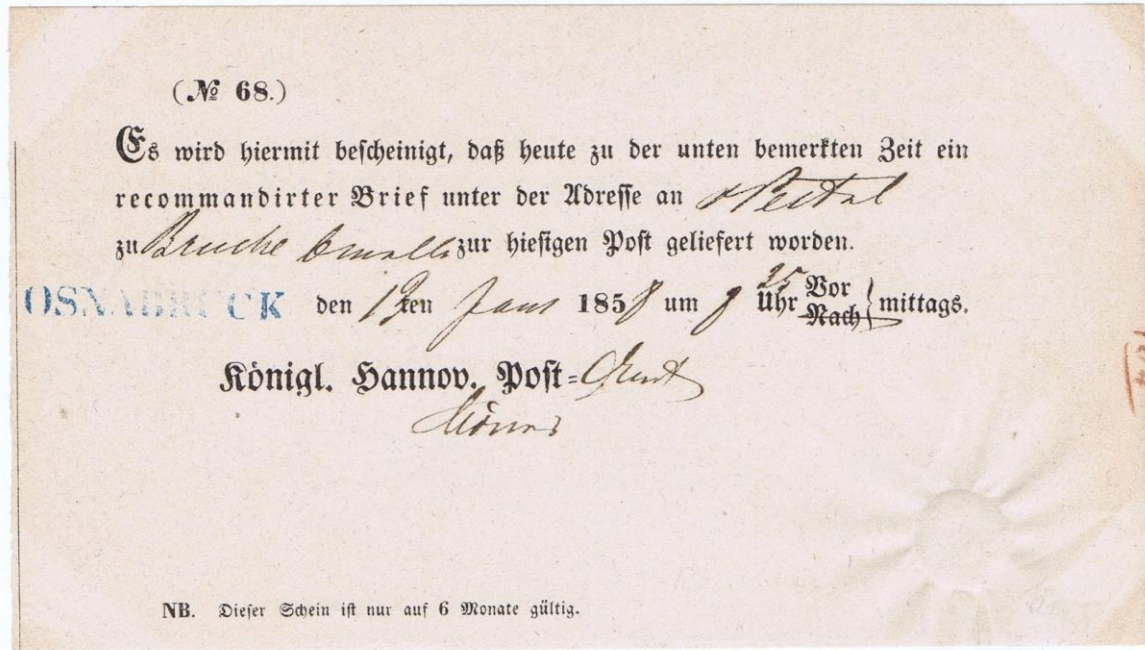 (№ 68.)
Es wird hiermit bescheinigt, daß heute zu der unten bemerkten Zeit ein
recommandirter Brief unter der Adresse an
zu Bruche zur hiesigen Post geliefert worden.
OSNABRÜCK den ten 1858 um 9 Uhr 35 Vor Nach mittags.
Königl. Hannov. Post=
NB. Dieser Schein ist nur auf 6 Monate gültig.